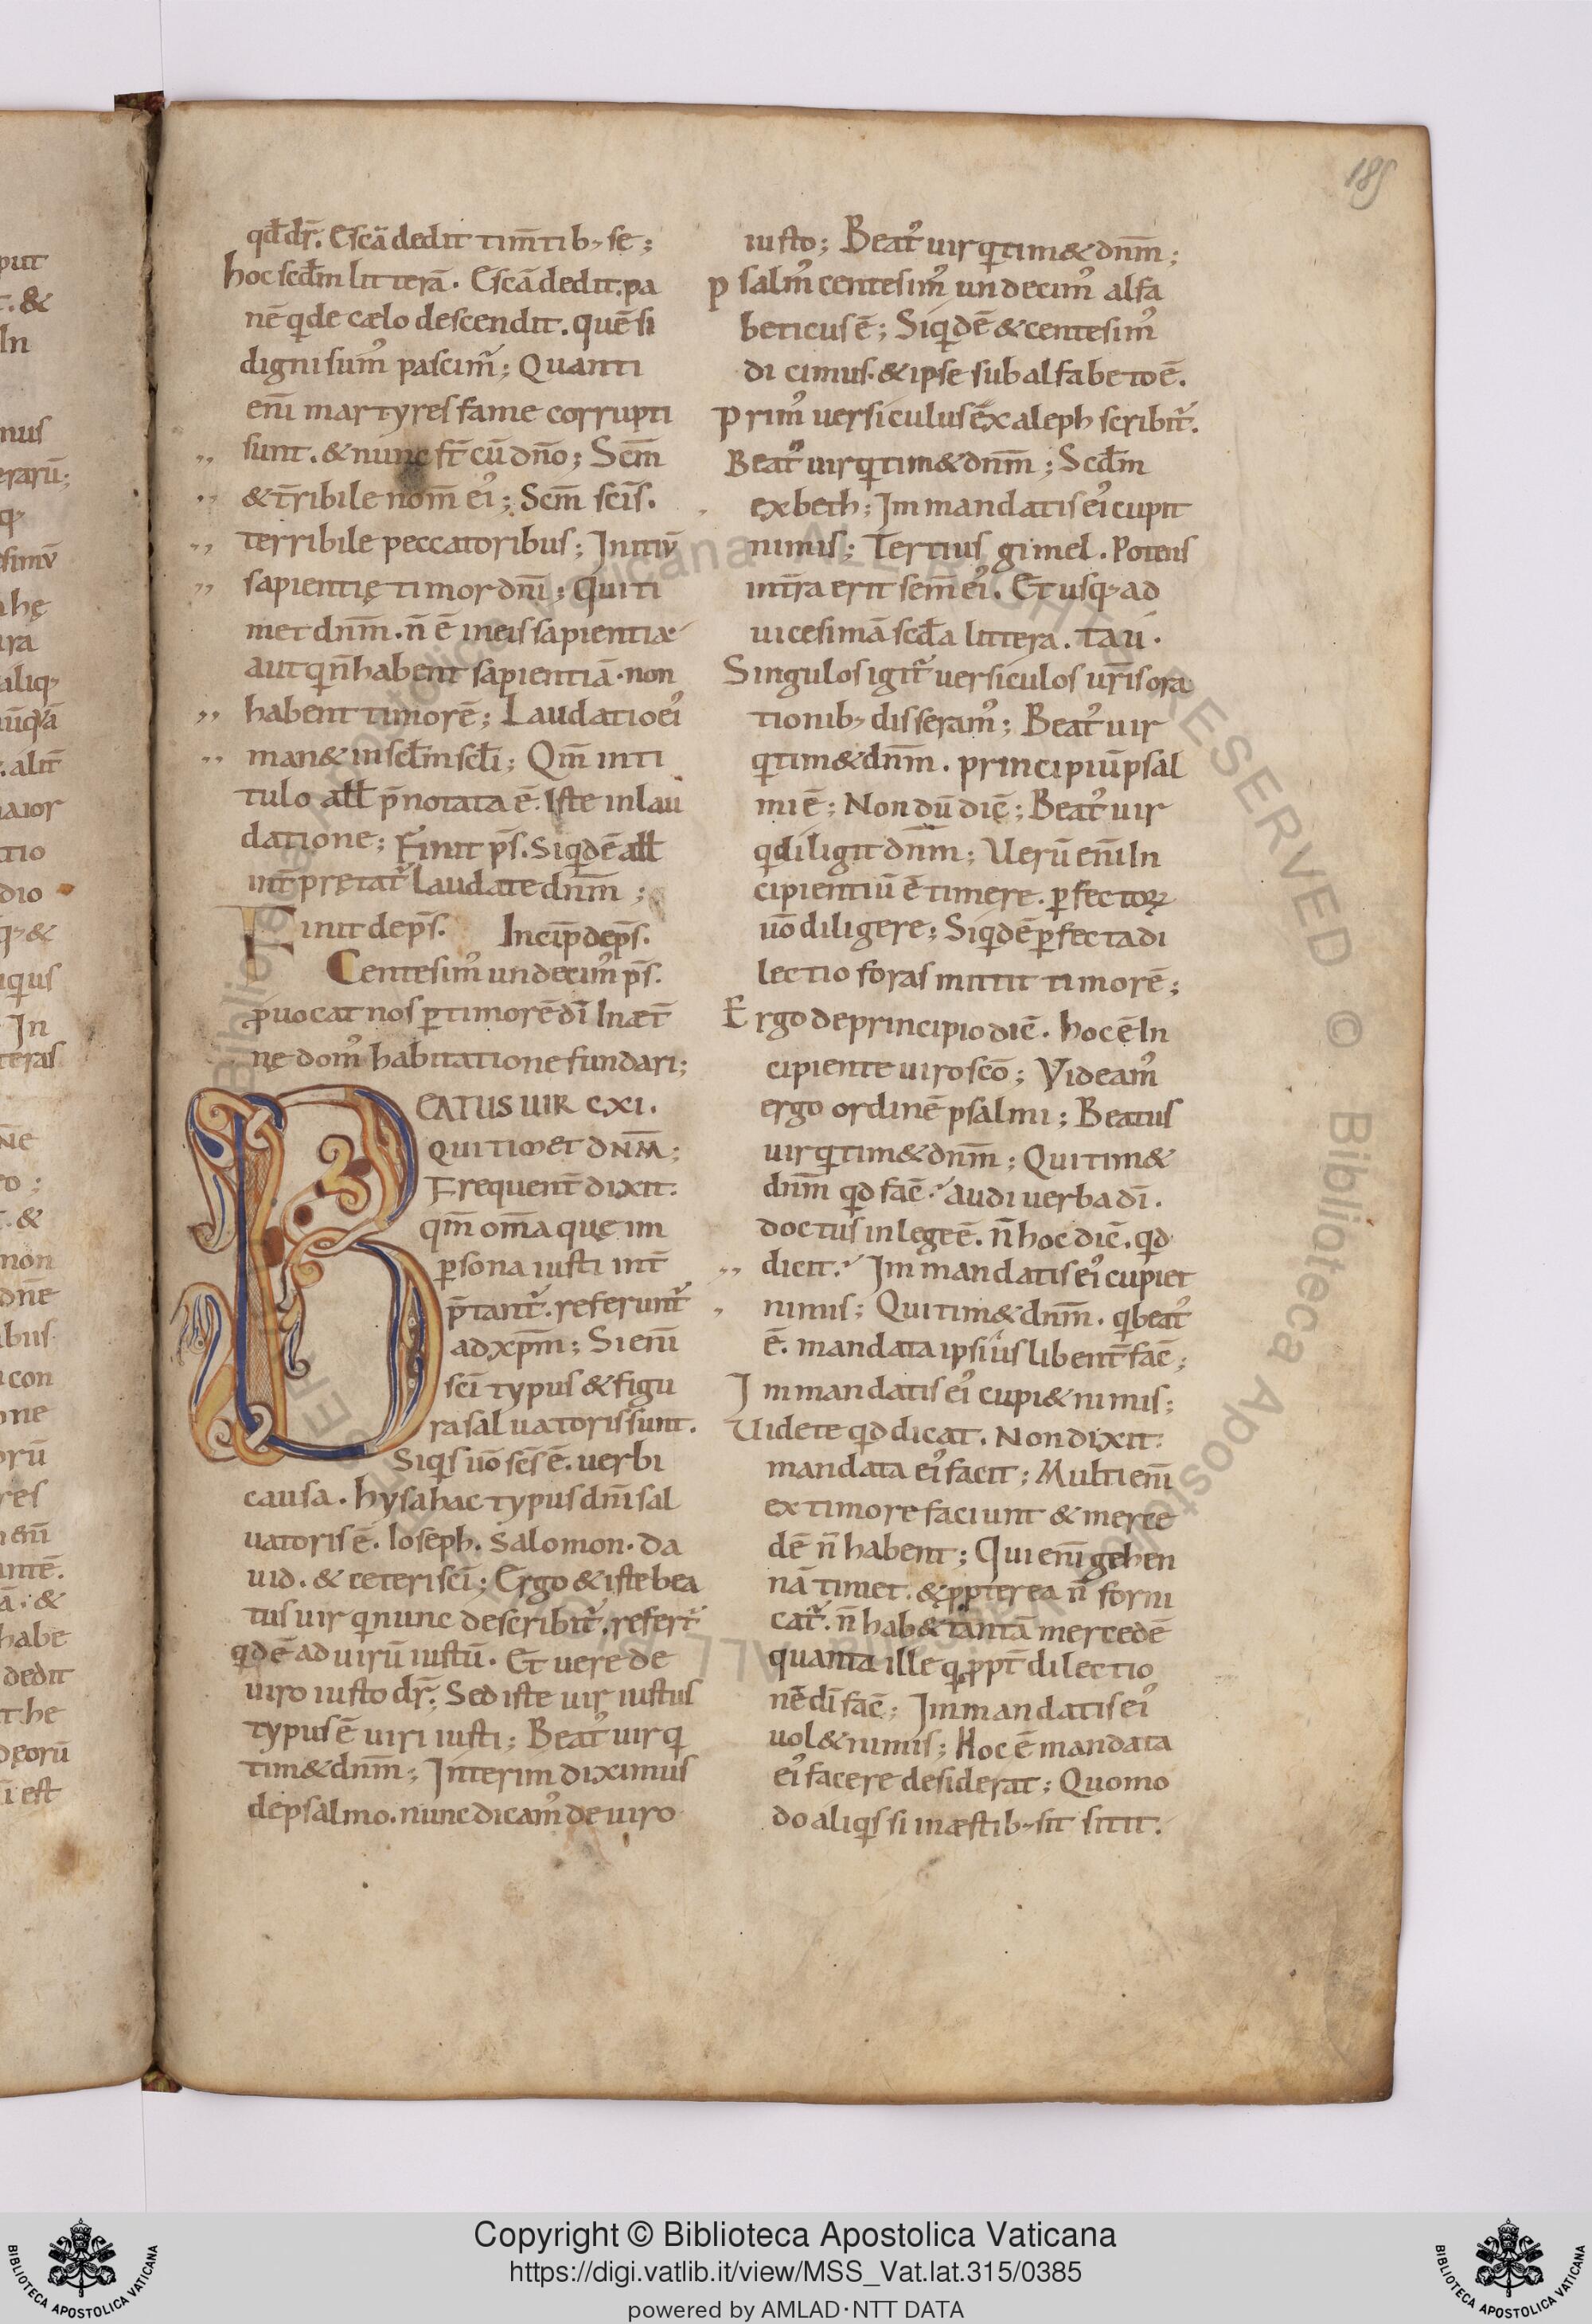 185
qđ dr̄. Escā dedit tim̄tib; se;
hoc scđm litterā. Escā dedit. pa
nē q de cælo descendit. quē si
digni sum᾽ pascim᾽; Quanti
eni martyres fame corrupti
sunt. & nunc st̄ cū dn̄o; Scm̄
& tr̄ribile nom̄ ei᾽; Scm̄ scīs.
terribile peccatoribus; Initiū
sapientię timor dn̄i; Qui ti
met dnm̄. n̄ ē in eis sapientiæ
aut q n̄ habent sapientiā. non
habent timorē; Laudatio ei᾽
man& in scl̄m scl̄i; Qm̄ in ti
tulo all̄ p̄notata ē. Iste in lau
datione; Finit ps̄. Siqdē all̄
int̄prętat᾽ laudate dnm̄;
Finit de ps̄. Incip̄ de ps̄.
Centesim᾽ undecim᾽ ps̄.
p̄uocat nos p timorē dī In æt̄
nę dom᾽ habitatione fundari;
BEATUS UIR CXI.
QUI TIMET DNM̄;
Frequent̄ dixit.
qm̄ om̄a quę im
p̱sona iusti int̄
p̄tant᾽. referunt᾽
ad xp̄m; Si enī
scī typus & figu
ra saluatoris sunt.
Siqs uō scs̄ ē. uerbi
causa. hysahac typus dn̄i sal
uatoris ē. Ioseph. Salomon. Da
uid. & ceteri scī; Ergo & iste bea
tus uir q nunc describit᾽. refert᾽
qdē ad uirū iustū. Et uere de
uiro iusto dr̄. Sed iste uir iustus
typus ē uiri iusti; Beat᾽ uir q
tim& dnm̄; Interim diximus
de psalmo. nunc dicam᾽ de uiro
iusto; Beat᾽ uir q tim& dnm̄;
psalm᾽ centesim᾽ undecim᾽ alfa
beticus ē; Siqdē & centesim᾽
dicimus. & ipse sub alfabeto ē.
Prim᾽ uersiculus ex aleph scribit᾽.
Beat᾽ uir q tim& dnm̄; Scđm
ex beth; Im mandatis ei᾽ cupit
nimis; Tertius gimel. Potens
int̄ra erit sem̄ ei᾽. Et usq; ad
uicesimā scđa littera. tau.
Singulos igit᾽ uersiculos ur̄is ora
tionib; disseram᾽; Beat᾽ uir
q tim& dnm̄. principiū psal
mi ē; Non dū dic̄; Beat᾽ uir
q diligit dnm̄; Uerū enī In
cipientiū ē timere. p̱fectoꝝ
uō diligere; Siqdē p̱fecta di
lectio foras mittit timorē;
Ergo de principio dic̄. hoc ē In
cipiente uiro scō; Videam᾽
ergo ordinē psalmi; Beatus
uir q tim& dnm̄; Qui tim&
dnm̄ qd fac̄? audi uerba dī.
doctus in lege ē. n̄ hoc dic̄. qd
dicit? Im mandatis ei᾽ cupiet
nimis; Qui tim& dnm̄. q beat᾽
ē. mandata ipsius libent̄ fac̄;
Im mandatis ei᾽ cupi& nimis;
Uidete qd dicat. Non dixit.
mandata ei᾽ facit; Multi enī
ex timore faciunt & merce
dē n̄ habent; Qui enī gehen
nā timet. & propterea n̄ forni
cat᾽. n̄ hab& tantā mercedē
quanta ille q propt̄ dilectio
nē dī fac̄; Im mandatis ei᾽
uol& nimis; Hoc ē mandata
ei᾽ facere desiderat; Quomo
do aliqs si in æstib; sit sitit.
Copyright © Biblioteca Apostolica Vaticana
https://digi.vatlib.it/view/MSS_Vat.lat.315/0385
powered by AMLAD·NTT DATA
BIBLIOTECA APOSTOLICA VATICANA
BIBLIOTECA APOSTOLICA VATICANA